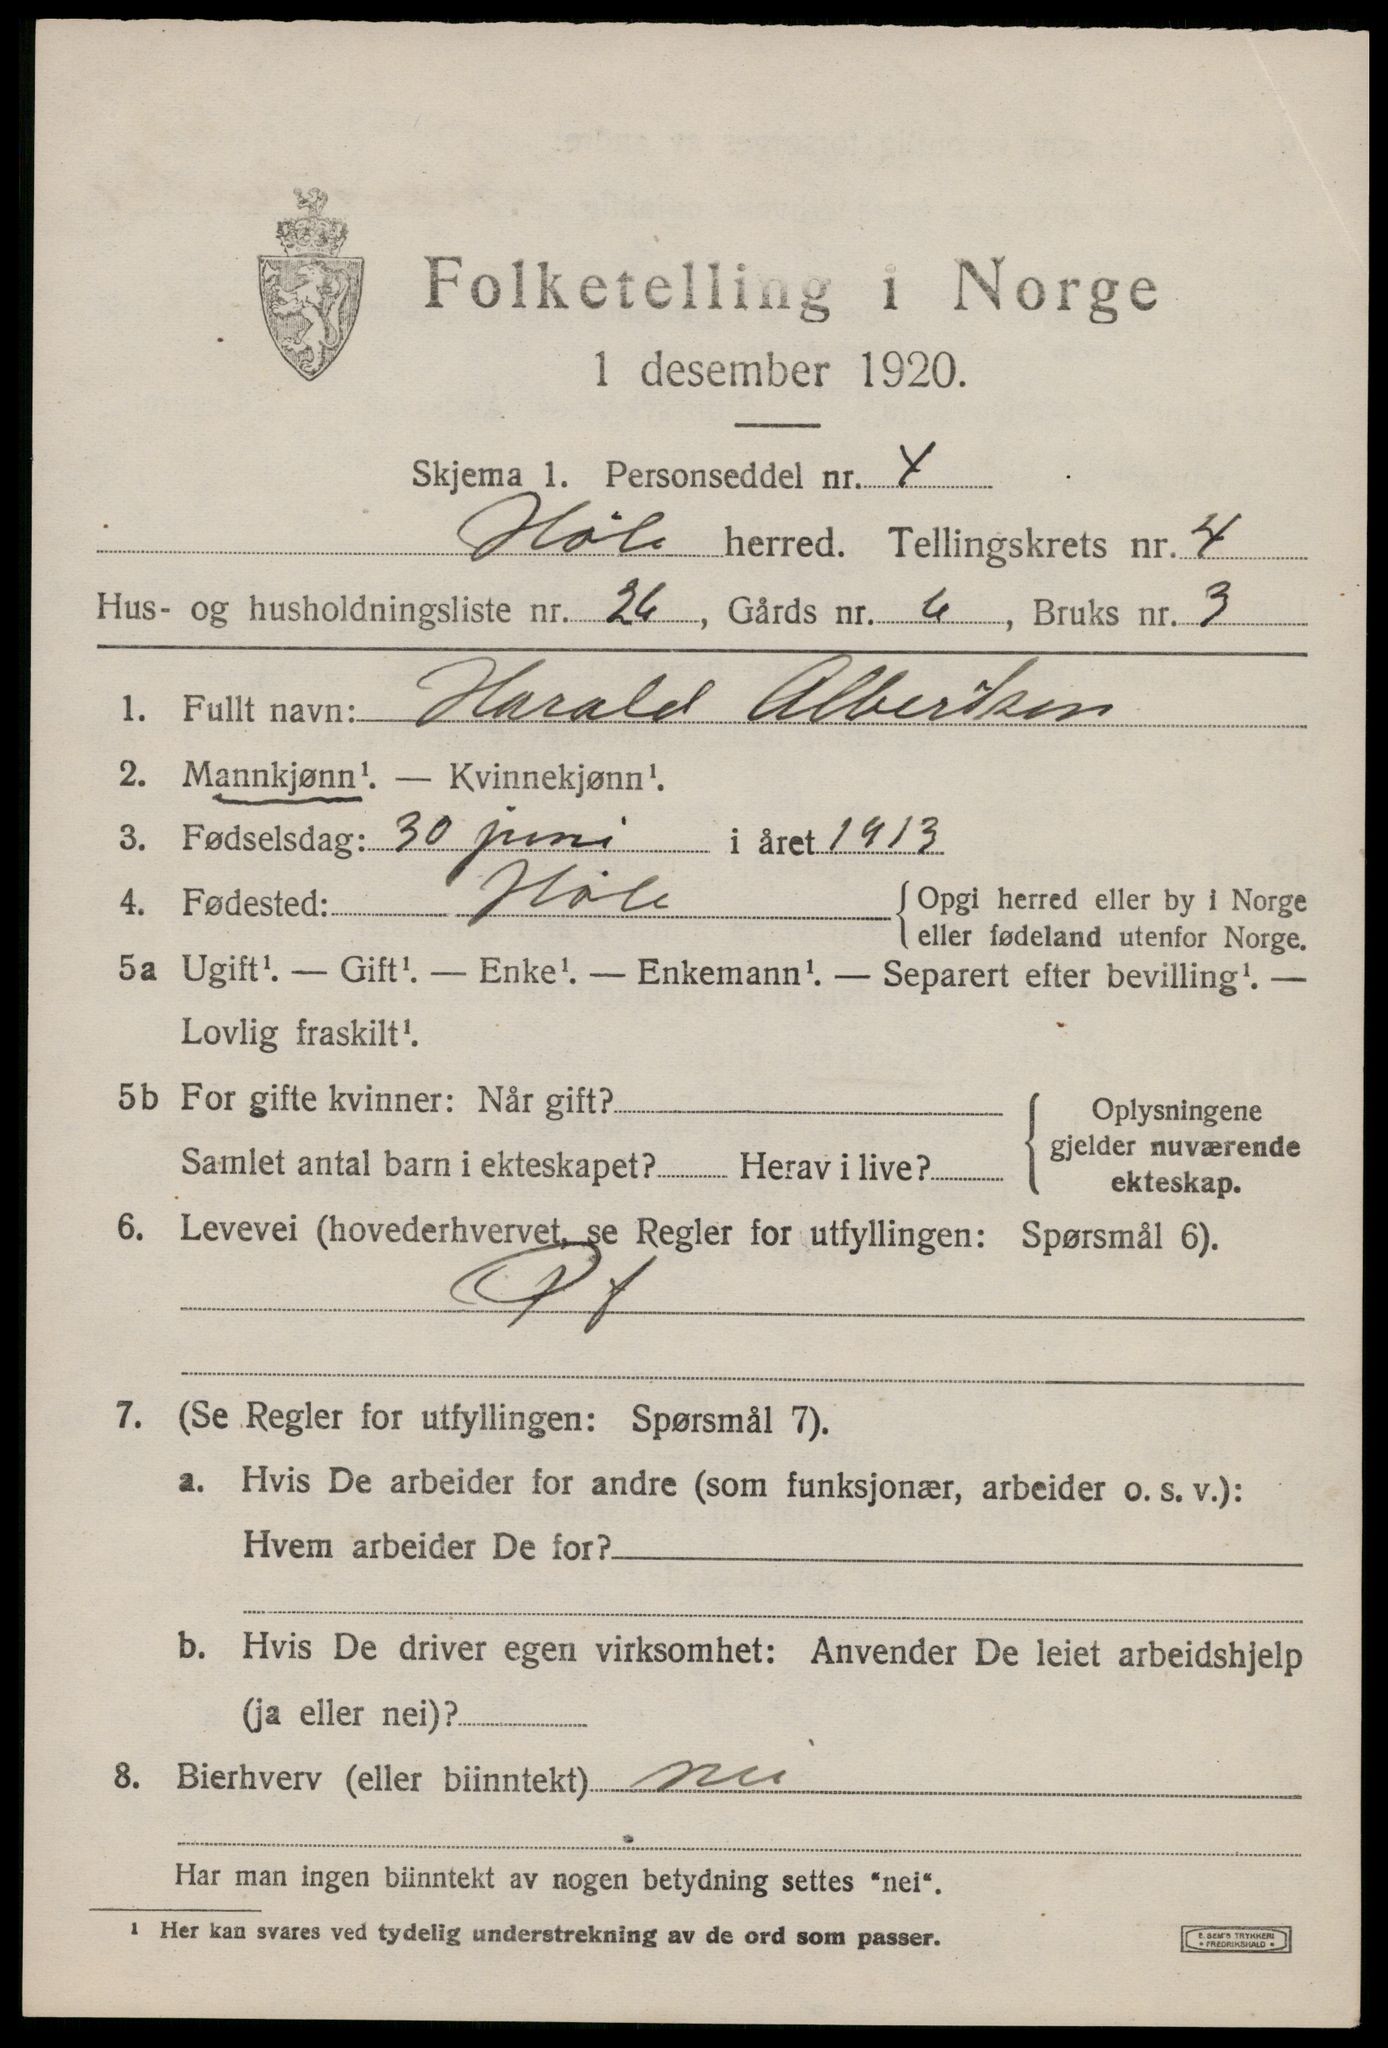 Folketelling i Norge
1 desember 1920.
Skjema 1. Personseddel nr. 4
Høle herred. Tellingskrets nr. 4
Hus- og husholdningsliste nr. 26, Gårds nr. 6, Bruks nr. 3
1. Fullt navn: Harald Albertsen
2. Mannkjønn¹. — Kvinnekjønn¹.
3. Fødselsdag: 30 juni i året 1913
4. Fødested: Høle { Opgi herred eller by i Norge
eller fødeland utenfor Norge.
5a Ugift¹. — Gift¹. — Enke¹. — Enkemann¹. — Separert efter bevilling¹. —
Lovlig fraskilt¹.
5b For gifte kvinner: Når gift?
Samlet antal barn i ekteskapet? Herav i live?
{ Oplysningene
gjelder nuværende
ekteskap.
6. Levevei (hovederhvervet, se Regler for utfyllingen: Spørsmål 6).
7. (Se Regler for utfyllingen: Spørsmål 7).
a. Hvis De arbeider for andre (som funksjonær, arbeider o. s. v.):
Hvem arbeider De for?
b. Hvis De driver egen virksomhet: Anvender De leiet arbeidshjelp
(ja eller nei)?
8. Bierhverv (eller biinntekt) nei
Har man ingen biinntekt av nogen betydning settes "nei".
¹ Her kan svares ved tydelig understrekning av de ord som passer.
E. SEM'S TRYKKERI
• FREDRIKSHALD •